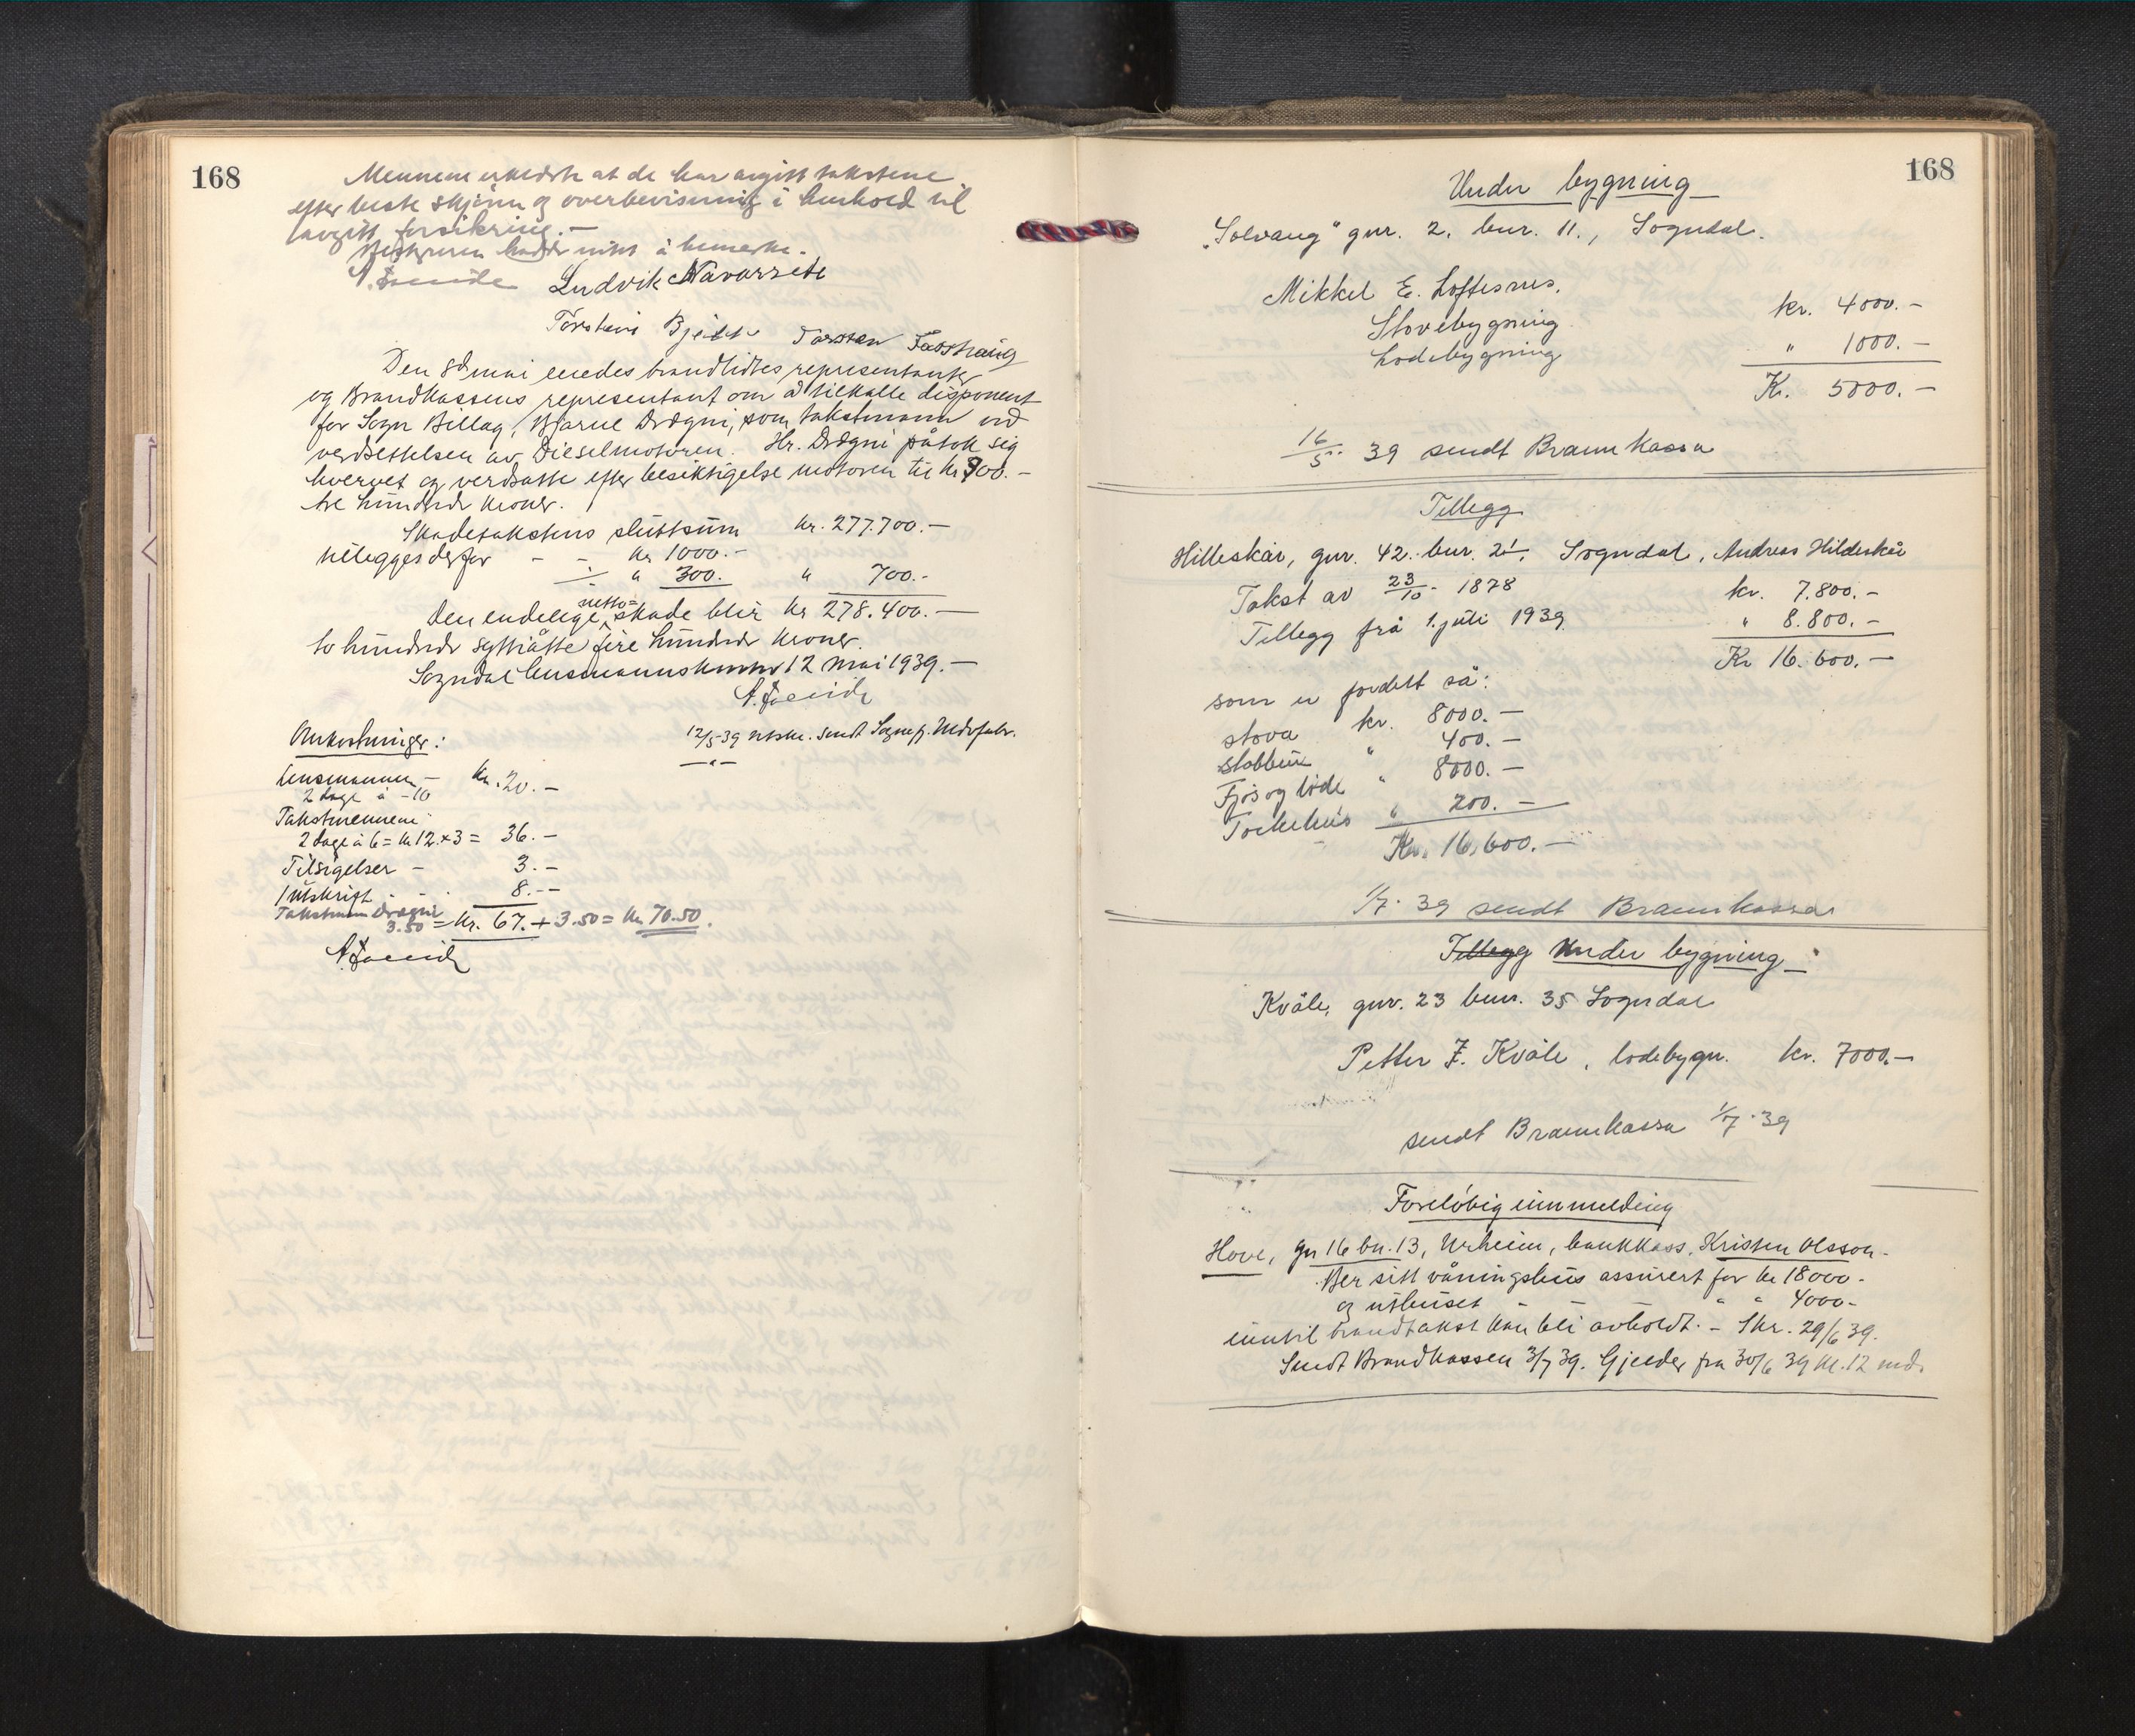 168
Mennene erklærte at de har avgitt takstene
efter beste skjønn og overbevisning i henhold til
avgitt forsikring. -
hadde intet å bemerke.
Ludvik Navarsete
Torstein Torsten
Den 8de mai enedes brandlidtes representanter
og Brandkassens representant om å tilkalle disponent
for Sogn Billag, Bjarne Drægni, som takstmann ved
verdsettelsen av Dieselmotoren. Hr. Drægni påtok sig
hvervet og verdsatte efter besiktigelse motoren til kr 300.-
tre hundrede kroner.
Skadetakstens sluttsum kr. 277.700.-
tillegges derfor - - kr 1000.-
" 300. " 700.-
Den endelige netto= skade blir kr 278.400.-
to hundrede syttiåtte fire hundrede kroner.
Sogndal lensmannskontor 12 mai 1939.-
Omkostninger:
12/5-39 utskr. sendt Sogne fj.
—"—
Lensmannen - kr. 20.-
2 dage à -10
Takstmennene
2 dage à 6 = kr 12. x 3 = 36.-
Tilsigelser - 3.-
1 utskrift - - 8.--
Takstmann Drægni
3.50 = kr. 67. + 3.50 = kr 70.50.
168
Under bygning
"Solvang" gnr. 2. bnr. 11., Sogndal.
Mikkel E. Loftesnes.
Stovebygning kr. 4000.-
Lodebygning " 1000.-
Kr. 5000.-
16/5. 39 sendt Brannkassa
Tillegg
Hilleskår, gnr. 42. bnr. 21. Sogndal, Andreas Hildeskår
Takst av 23/10- 1878 kr. 7.800.-
Tillegg frå 1. juli 1939 " 8.800.-
Kr 16.600.-
som er fordelt så:
stova kr. 8000.-
stabbur " 400.-
Fjøs og löde " 8000.-
Torkehus " 200.-
Kr. 16,600.-
1/7. 39 sendt Brannkassa
Tillegg Under bygning
Kvåle, gnr. 23 bnr. 35 Sogndal
Petter J. Kvåle, lodebygn. kr. 7000.-
sendt Brannkassa 1/7.39
Foreløbig innmelding
Hove, gn 16 bn. 13, Urheim, bankkass. Kristen Olsson.
Ber sitt våningshus assurert for kr 18000.-
og uthuset - - " " 4000.-
inntil brandtakst kan bli avholdt. - Skr. 29/6 39.
Sendt Brandkassen 3/7 39. Gjelder fra 30/6 39 kl. 12 md.